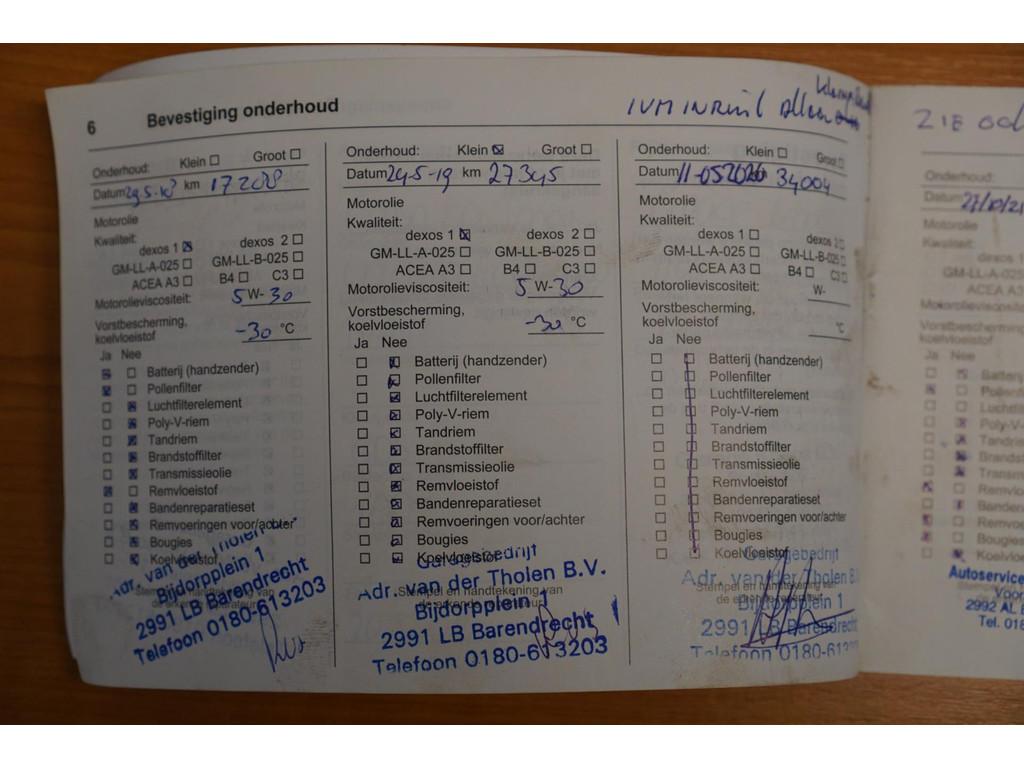 6 Bevestiging onderhoud
IVM INRUIL
Onderhoud: Klein Groot
Datum km 17208
Motorolie
Kwaliteit:
dexos 1 dexos 2
GM-LL-A-025 GM-LL-B-025
ACEA A3 B4 C3
Motorolieviscositeit: 5 W-30
Vorstbescherming,
koelvloeistof -30 °C
Ja Nee
Batterij (handzender)
Pollenfilter
Luchtfilterelement
Poly-V-riem
Tandriem
Brandstoffilter
Transmissieolie
Remvloeistof
Bandenreparatieset
Remvoeringen voor/achter
Bougies
Koelvloeistof
Adr. van der Tholen
Bijdorpplein 1
2991 LB Barendrecht
Telefoon 0180-613203
Onderhoud: Klein Groot
Datum 24-5-19 km 27345
Motorolie
Kwaliteit:
dexos 1 dexos 2
GM-LL-A-025 GM-LL-B-025
ACEA A3 B4 C3
Motorolieviscositeit: 5 W-30
Vorstbescherming,
koelvloeistof -30 °C
Ja Nee
Batterij (handzender)
Pollenfilter
Luchtfilterelement
Poly-V-riem
Tandriem
Brandstoffilter
Transmissieolie
Remvloeistof
Bandenreparatieset
Remvoeringen voor/achter
Bougies
Koelvloeistof
Garagebedrijf
Adr. van der Tholen B.V.
Stempel en handtekening van
Bijdorpplein 1
2991 LB Barendrecht
Telefoon 0180-613203
Onderhoud: Klein Groot
Datum 11-05-2020 34004
Motorolie
Kwaliteit:
dexos 1 dexos 2
GM-LL-A-025 GM-LL-B-025
ACEA A3 B4 C3
Motorolieviscositeit: W-
Vorstbescherming,
koelvloeistof °C
Ja Nee
Batterij (handzender)
Pollenfilter
Luchtfilterelement
Poly-V-riem
Tandriem
Brandstoffilter
Transmissieolie
Remvloeistof
Bandenreparatieset
Remvoeringen voor/achter
Bougies
Koelvloeistof
Garagebedrijf
Adr. van der Tholen B
Stempel en handtekening van
Bijdorpplein 1
2991 LB Barendrecht
Telefoon 0180-613
ZIE
Onderhoud:
Datum 27/10/21
Motorolie
Kwaliteit:
dexos 1
GM-LL-A-025
ACEA A3
Motorolieviscositeit
Vorstbescherming,
koelvloeistof
Ja Nee
Batterij
Pollenf
Luchtf
Poly-V
Tandrie
Brands
Transm
Remvlo
Banden
Remvo
Bougies
Koelvlo
Autoservice
Voor
2992 AL
Tel. 018